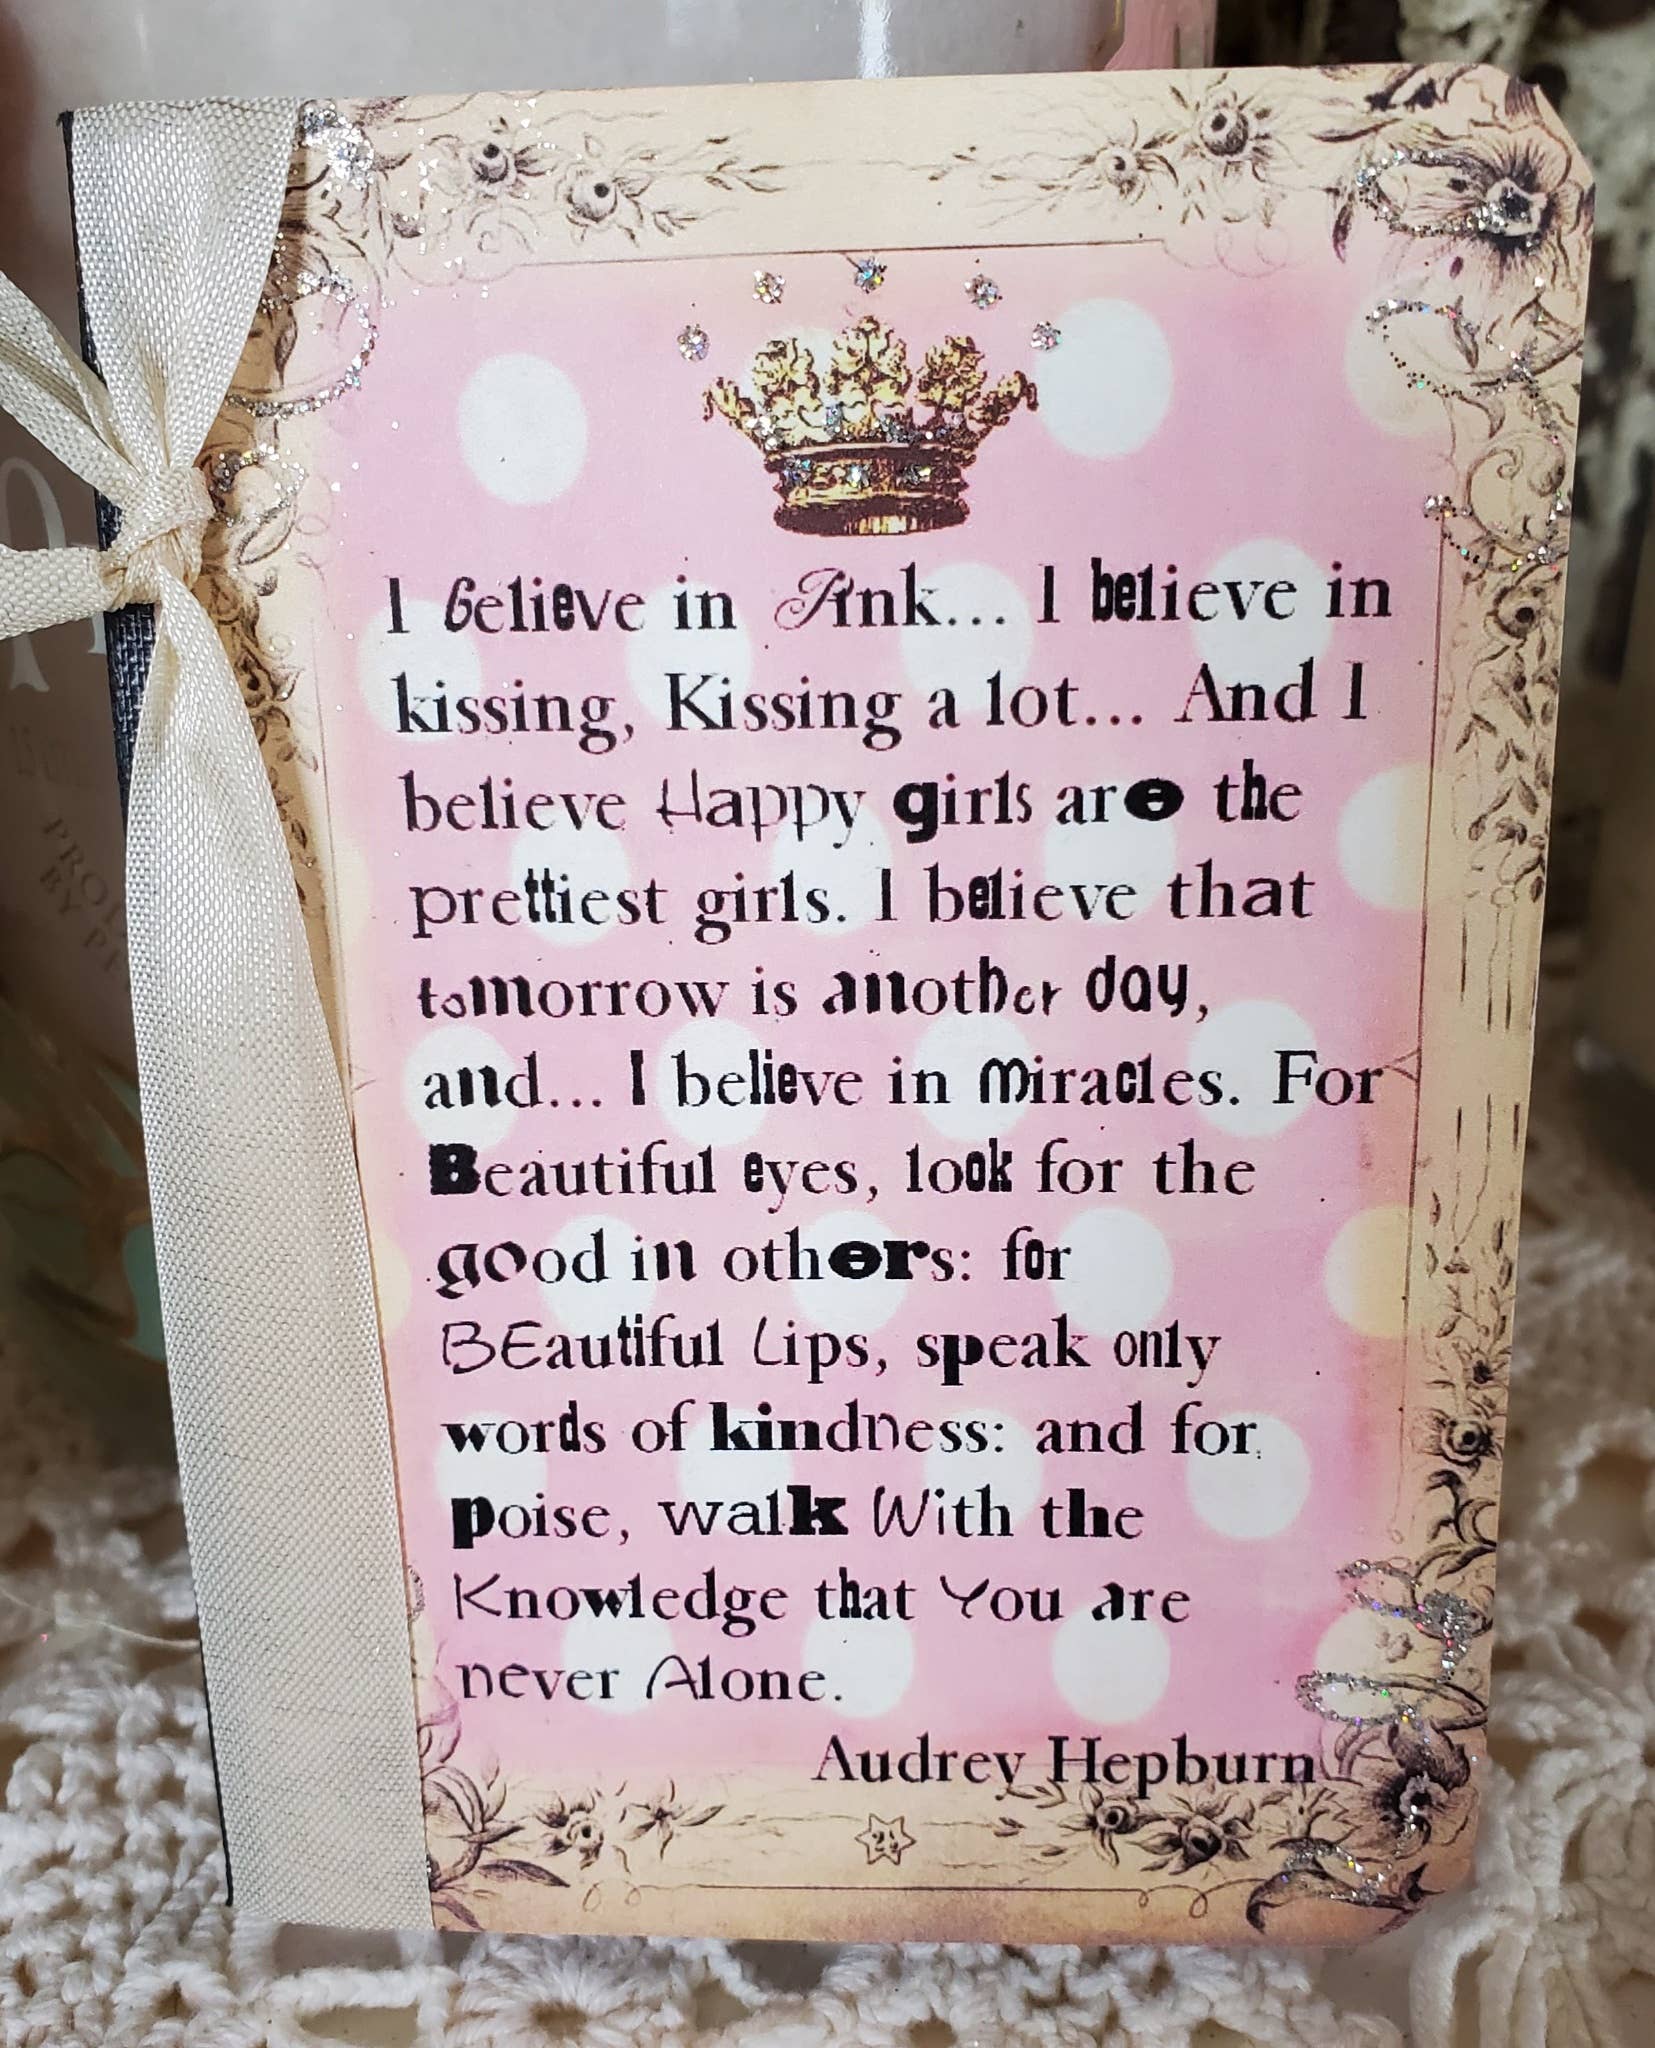 I believe in Pink... I believe in
kissing, Kissing a lot... And I
believe Happy girls are the
prettiest girls. I believe that
tomorrow is another day,
and... I believe in miracles. For
Beautiful eyes, look for the
good in others: for
BEautiful Lips, speak only
words of kindness: and for
poise, walk With the
Knowledge that You are
never Alone.
Audrey Hepburn
24